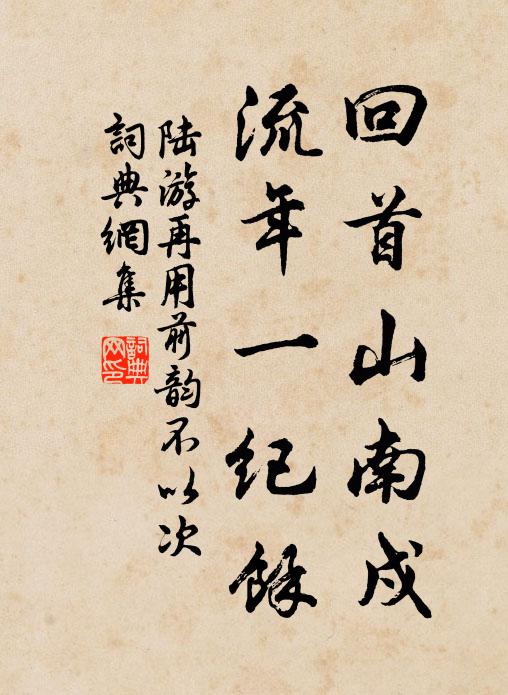 回首山南戍
流年一紀餘
陆游再用前韵不以次
詞典網集
詞典
网印